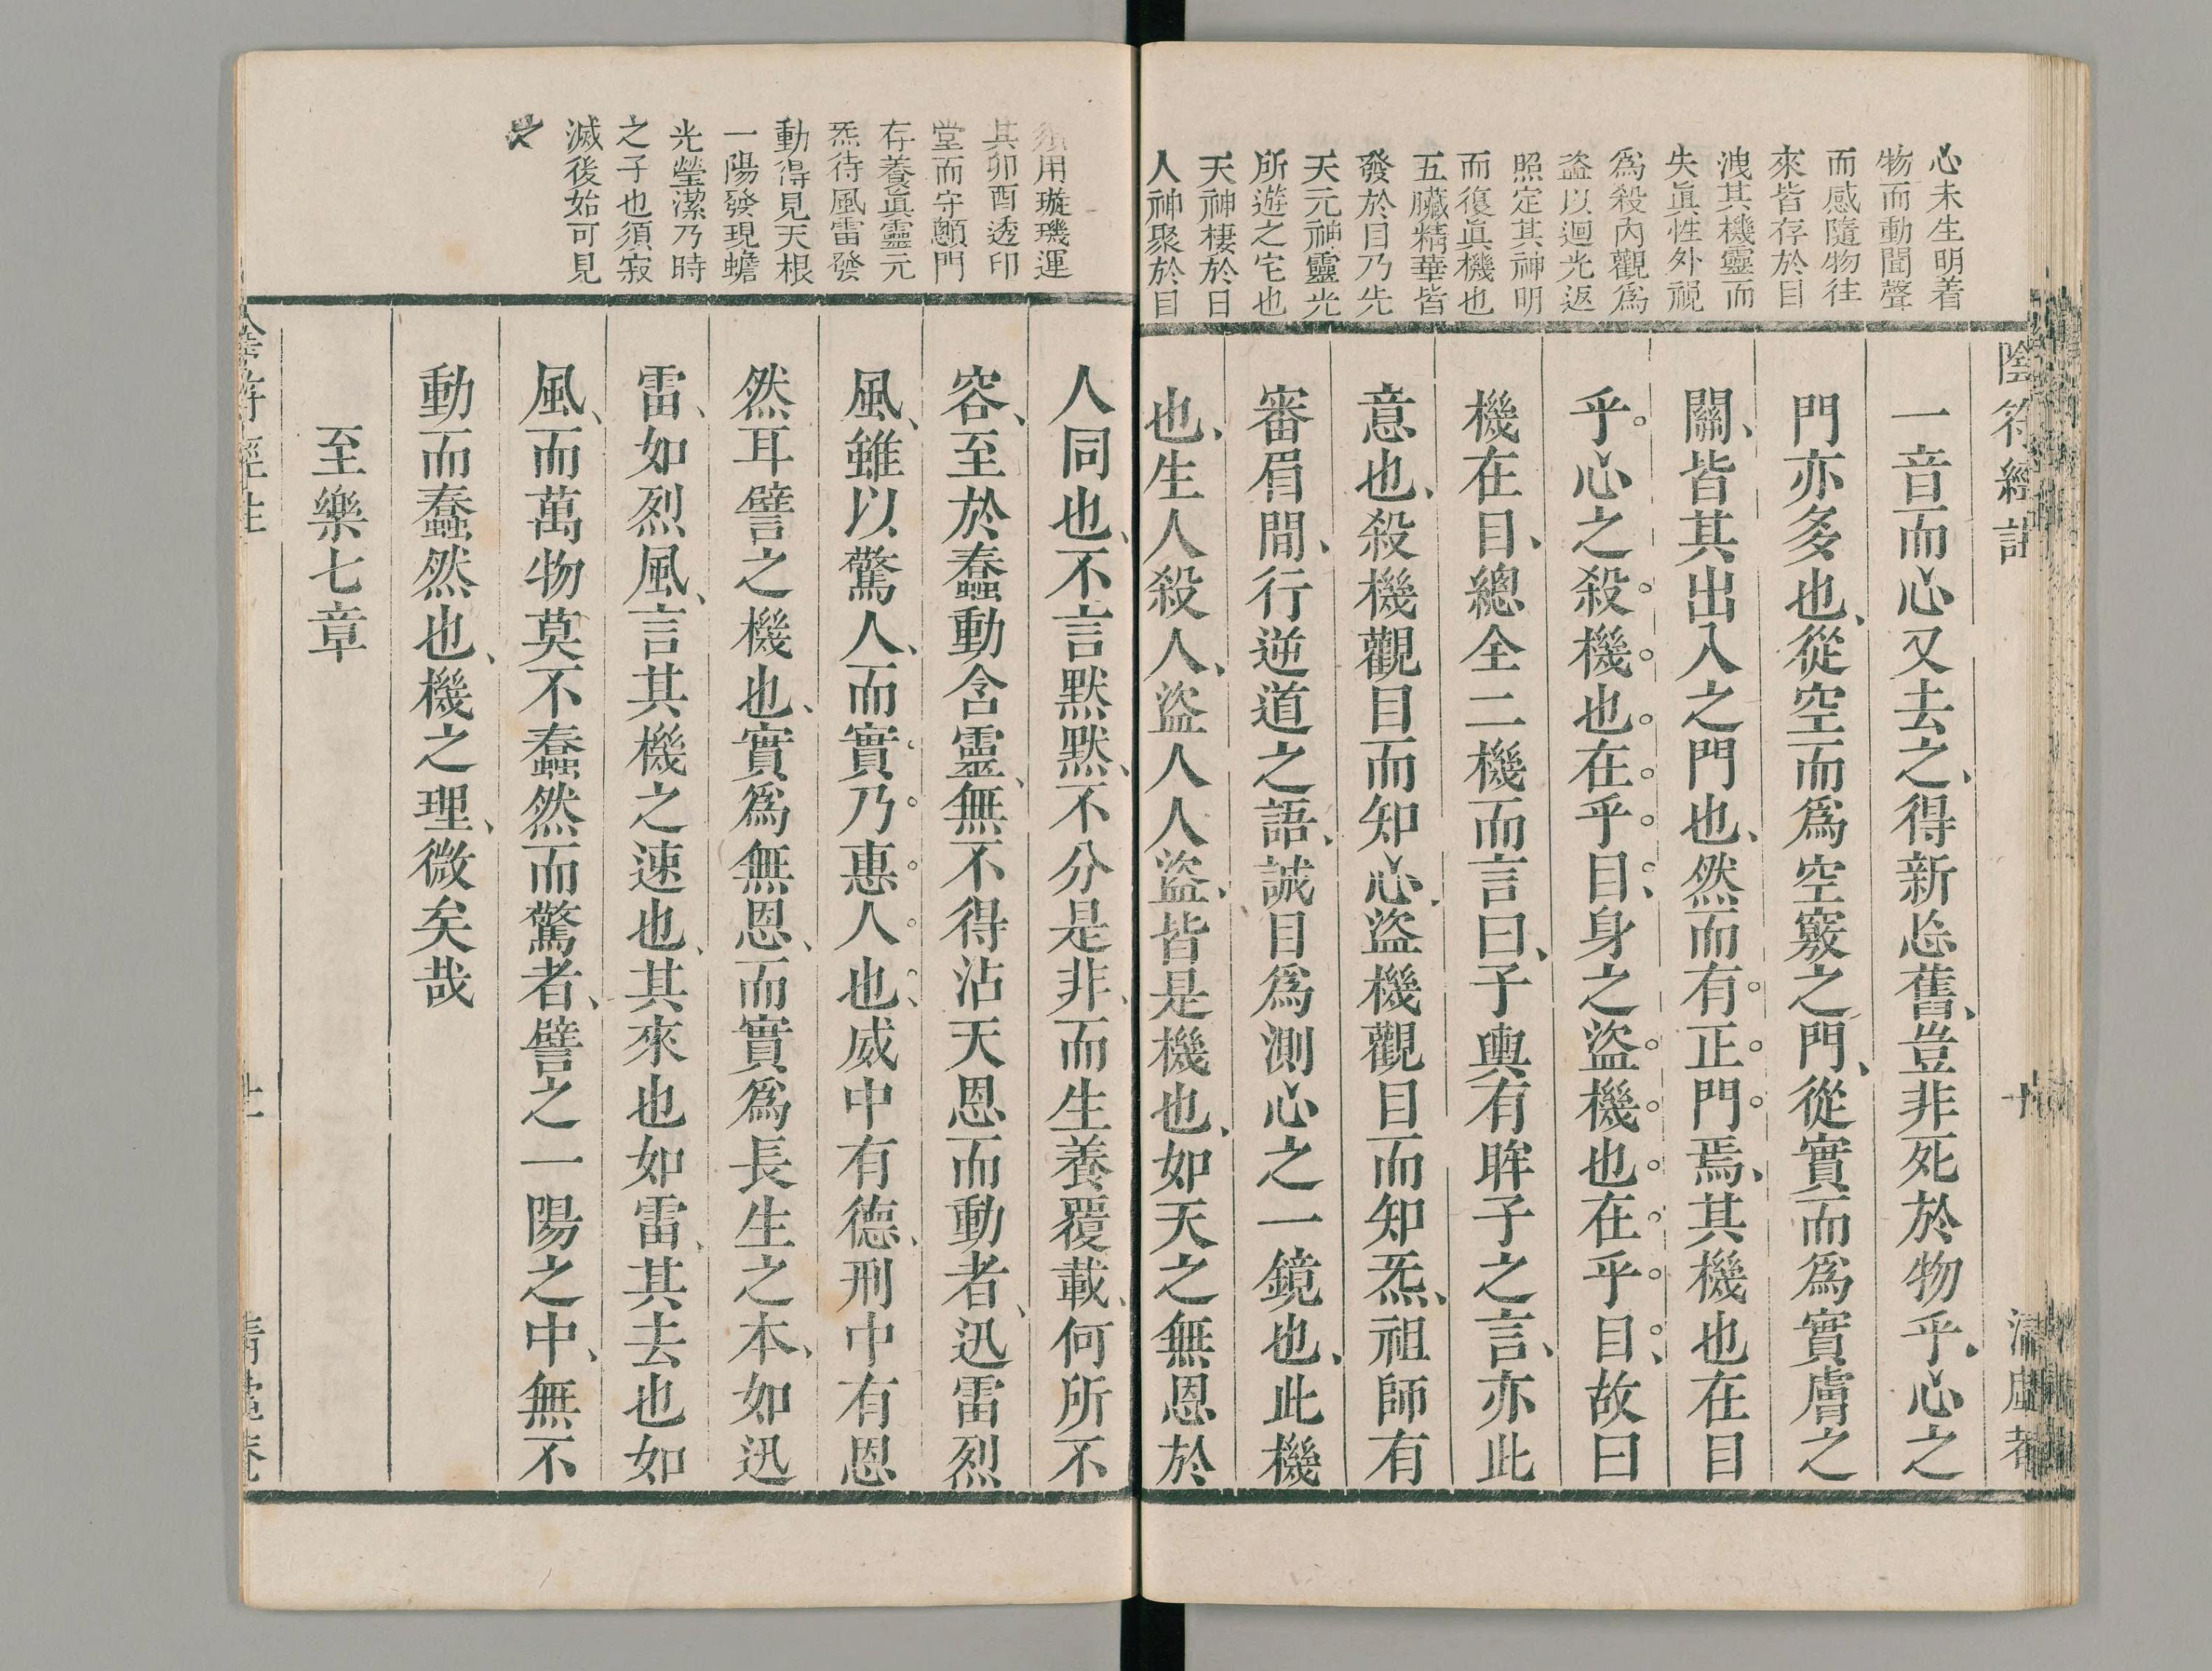 心未生明着
物而動聞聲
而感隨物往
來皆存於目
洩其機靈而
失眞性外視
爲殺內觀爲
盜以迴光返
照定其神明
而復眞機也
五臟精華皆
發於目乃先
天元神靈光
所遊之宅也
天神棲於日
人神聚於目
陰符經註
十
一音而心又去之、得新忘舊、豈非死於物乎、心之
門亦多也、從空而爲空竅之門、從實而爲實膚之
關、皆其出入之門也、然而有。正。門。焉、其機也在目
乎。心之殺。機。也。在。乎。目。、身之盜。機。也。在。乎。目。、故曰
機在目、總全二機而言曰、子輿有眸子之言、亦此
意也、殺機觀目而知心、盜機觀目而知炁、祖師有
審眉間、行逆道之語、誠目爲測心之一鏡也、此機
也、生人殺人、盜人人盜、皆是機也、如天之無恩於
須用璇璣運
其卯酉透印
堂而守顖門
存養眞靈元
炁待風雷發
動得見天根
一陽發現蟾
光瑩潔乃時
之子也須寂
滅後始可見
之
人同也、不言默默、不分是非、而生養覆載、何所不
容、至於蠢動含靈、無不得沾天恩而動者、迅雷烈
風、雖以驚人、而實。乃。惠。人。也。、威中有德、刑中有恩
然耳譬之機也、實爲無恩、而實爲長生之本、如迅
雷、如烈風、言其機之速也、其來也如雷、其去也如
風、而萬物莫不蠢然而驚者、譬之一陽之中、無不
動而蠢然也、機之理、微矣哉
至樂七章
陰符經註